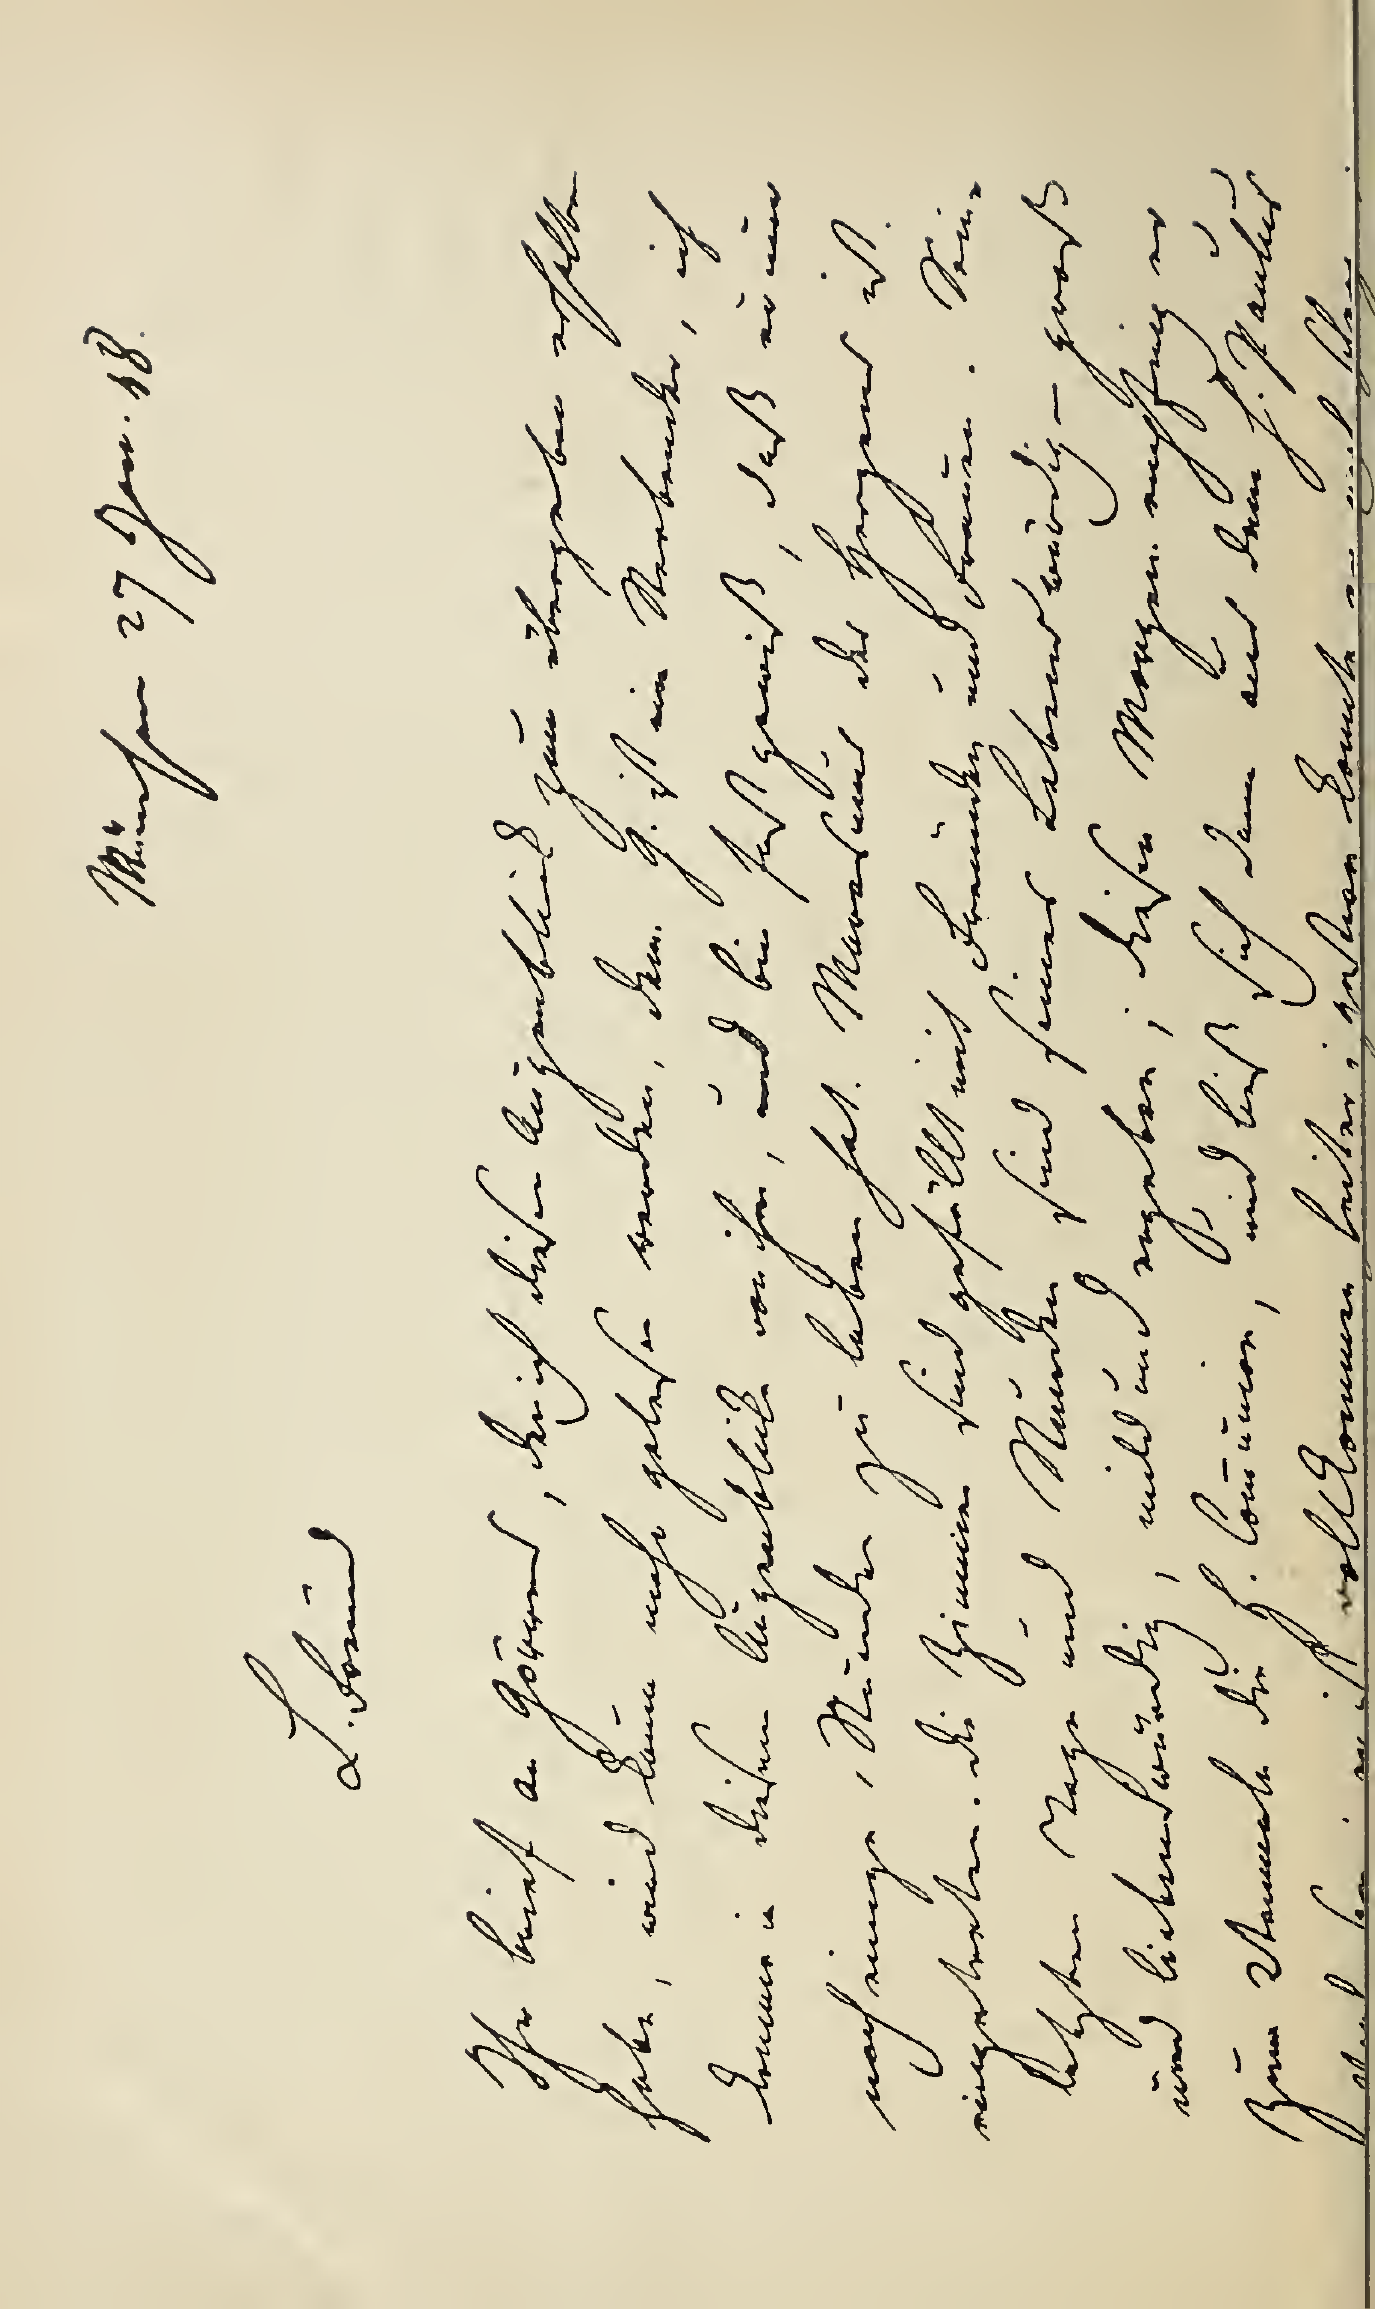 München 27 Jan. 48.
L. Freund
Ihr brief an Görres, den ich diesen Augenblick zum übergeben erhalten
habe, wird kaum mehr gelesen werden, denn G. ist ein Sterbender, ich
komme in diesem Augenblick von ihm, und bin fest gewiß, daß er nur
noch einige Stunden zu leben hat. Marasmus des Herzens ist
eingetreten. die Zimmer sind gefüllt mit Freunden und Frauen. Seine
letzten Tage und Stunden sind seines Lebens würdig – groß
und liebenswürdig, mild und ergeben; diesen Morgen empfing er
zum 2tenmale die h. Comunion, und ließ sich dann aus dem h. Paulus
vollkommen heiter; gestern konnte er noch